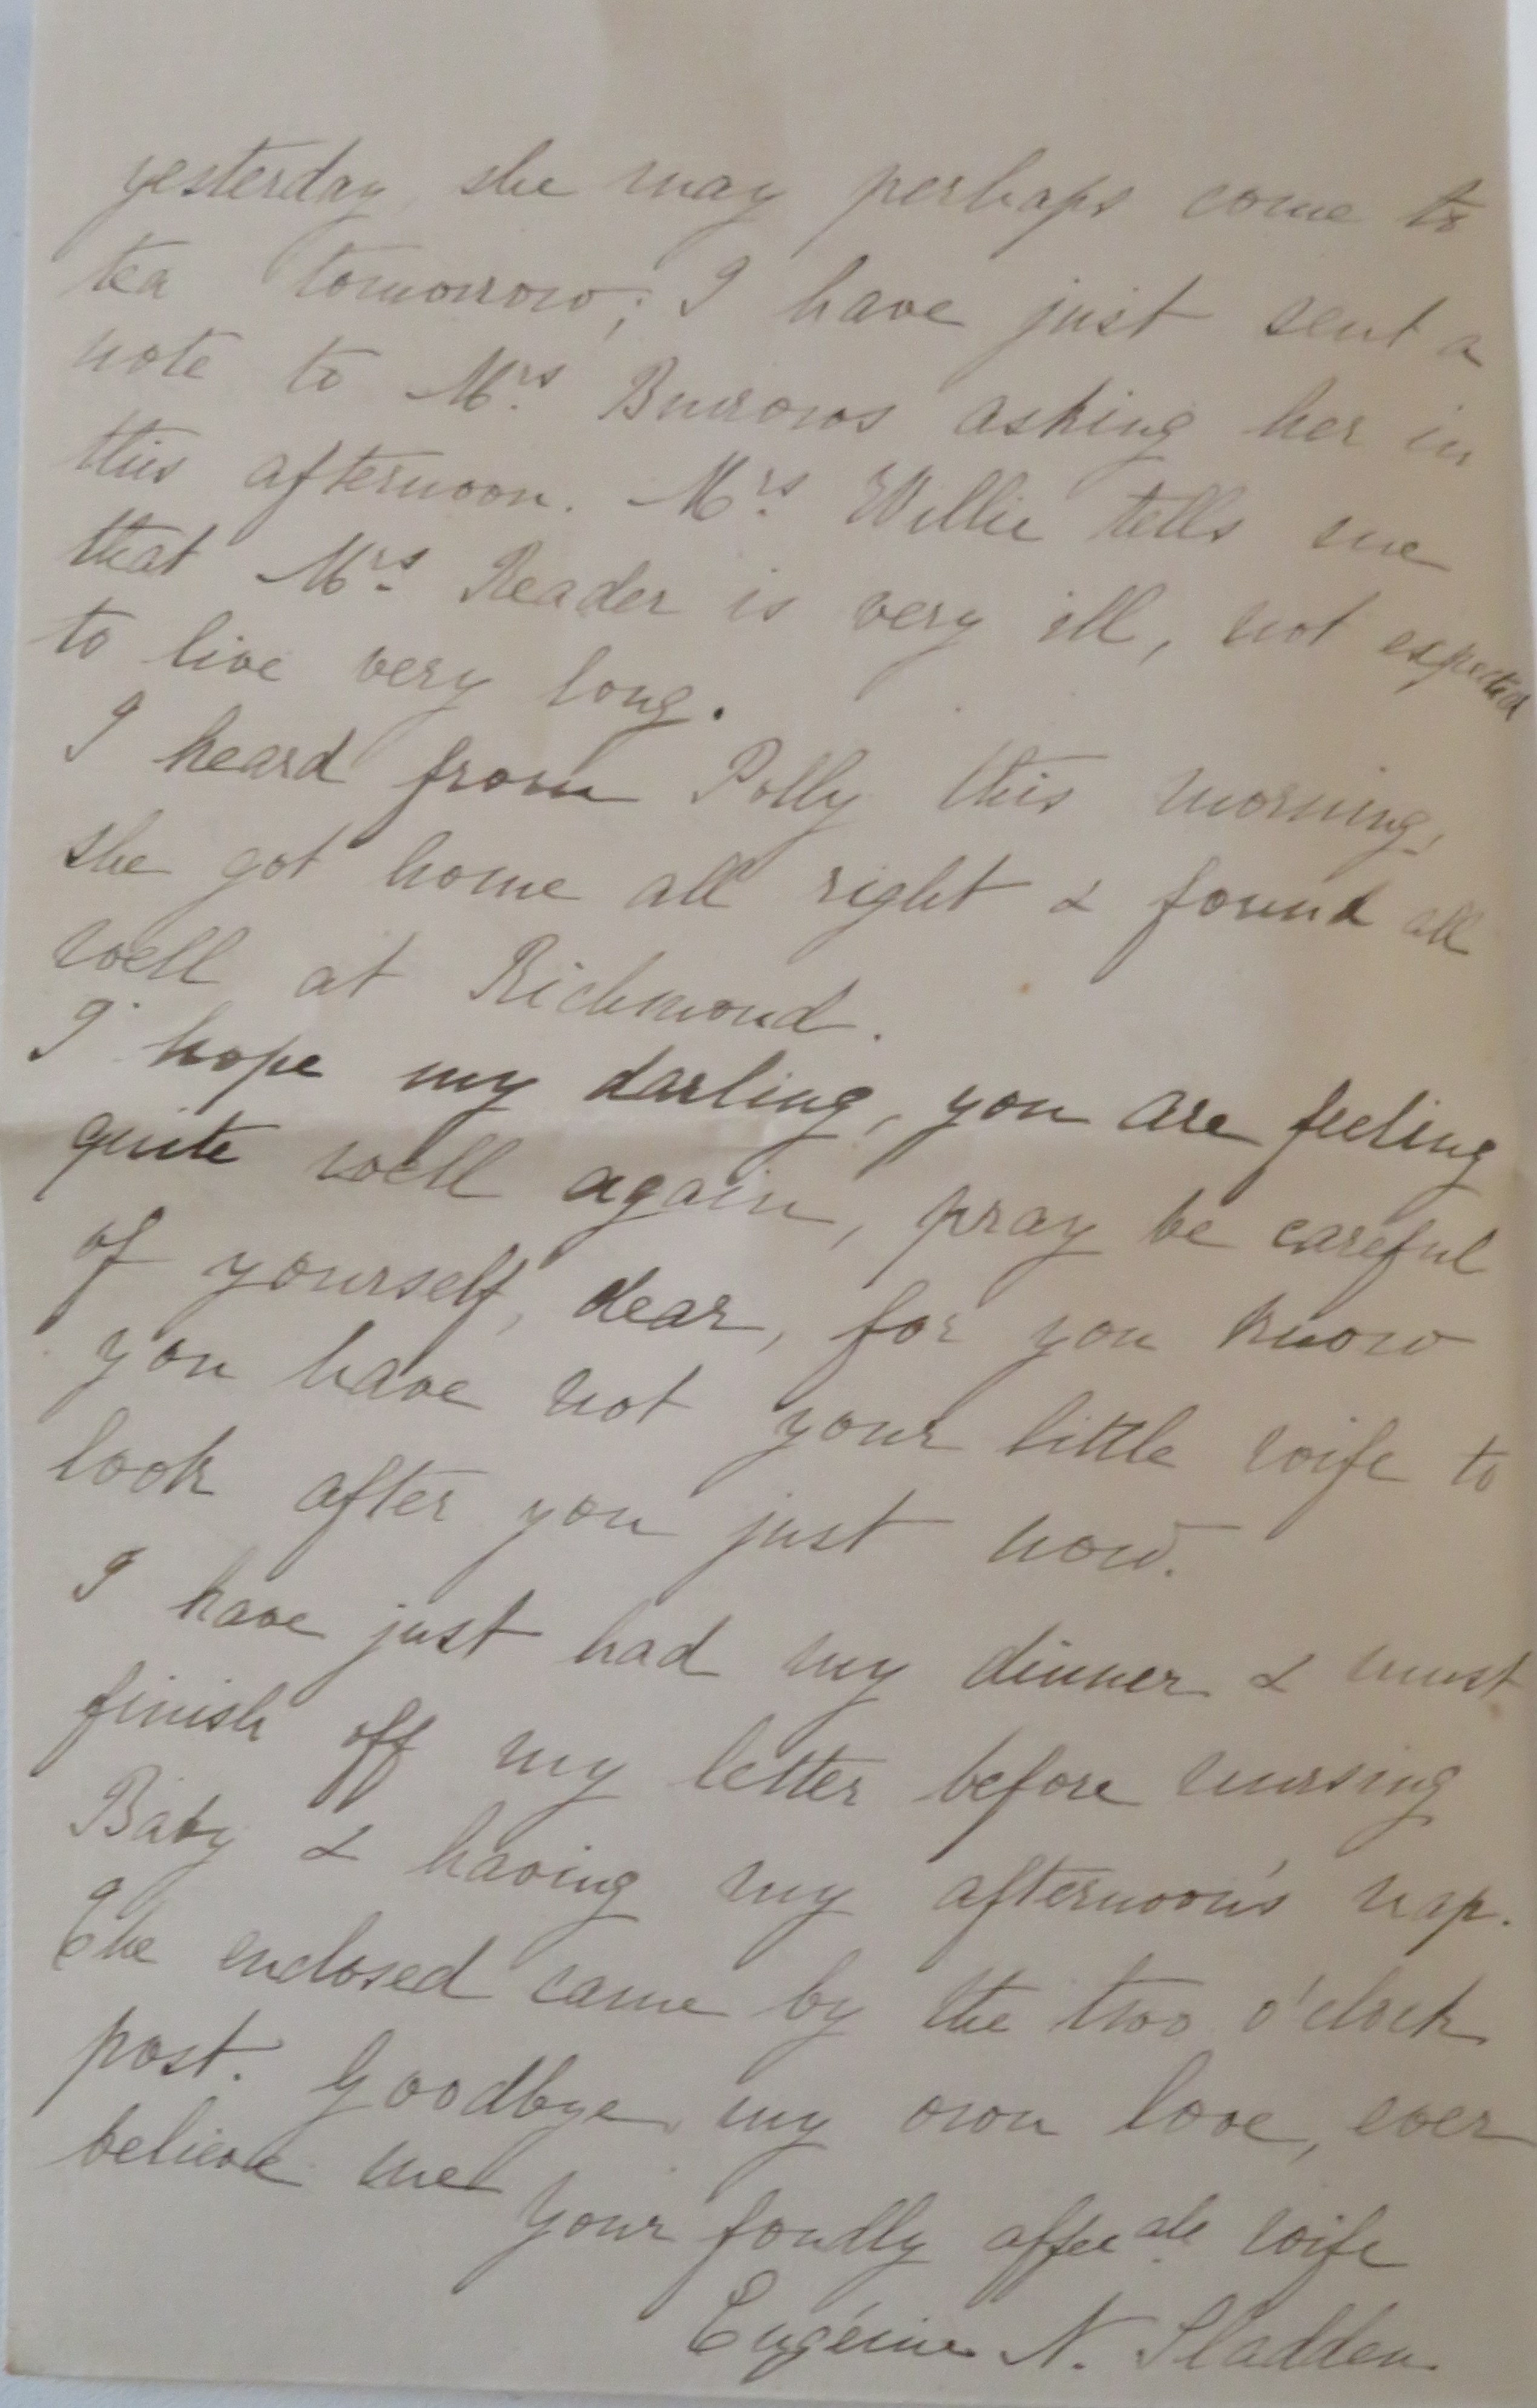 yesterday she may perhaps come to
tea tomorrow; I have just sent a
note to Mrs. Burrows asking her in
this afternoon. Mrs. Willie tells me
that Mrs. Reader is very ill, not expected
to live very long.
I heard from Polly this morning,
she got home all right & found all
well at Richmond.
I hope my darling, you are feeling
quite well again, pray be careful
of yourself, dear, for you know
you have not your little wife to
look after you just now.
I have just had my dinner & must
finish off my letter before nursing
Baby & having my afternoon's nap.
The enclosed came by the two o'clock
post. Goodbye my own love, ever
believe me
Your fondly affecate wife
Eugénie N. Sladden